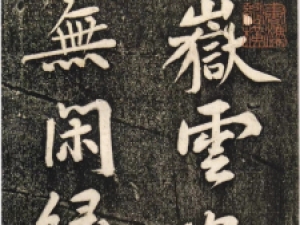 嶽雲
無閑緣